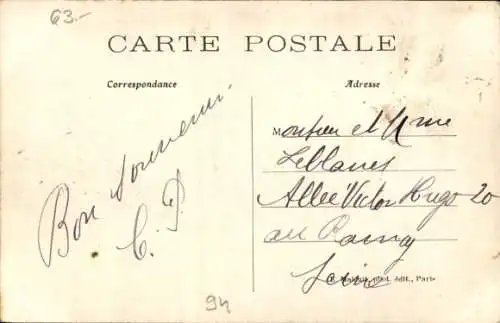 63.-
CARTE POSTALE
Correspondance
Adresse
Bon Souvenir
C. P.
Monsieur et Mme
Leblanes
Allée Victor Hugo 20
au Raincy
Seine
phot. édit., Paris
94